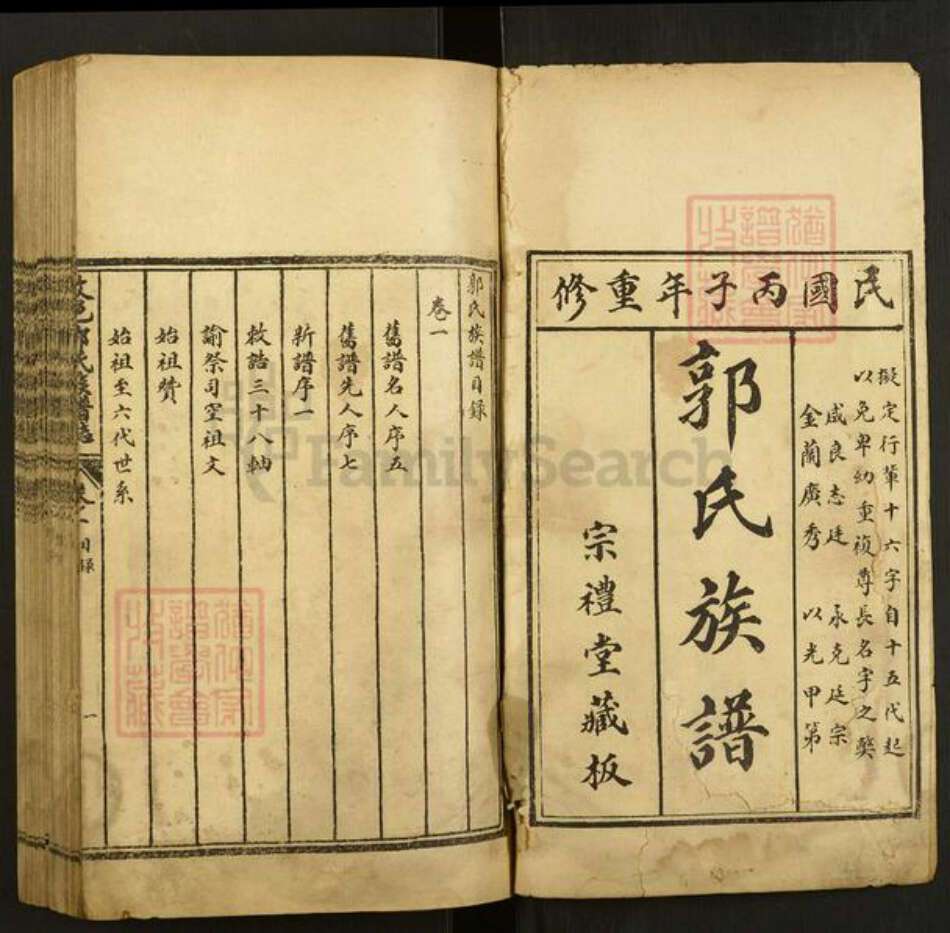 民國丙子年重修
擬定行輩十六字自十五代起
以免卑幼重複尊長名字之獘
咸良志廷 承克廷宗
金蘭廣秀 以光甲第
郭氏族譜
宗禮堂藏板
郭氏族譜目録
卷一
舊譜名人序五
舊譜先人序七
新譜序一
敕誥三十八軸
諭祭司空祖文
始祖贊
始祖至六代世系
郭氏族譜
目録
一
FamilySearch